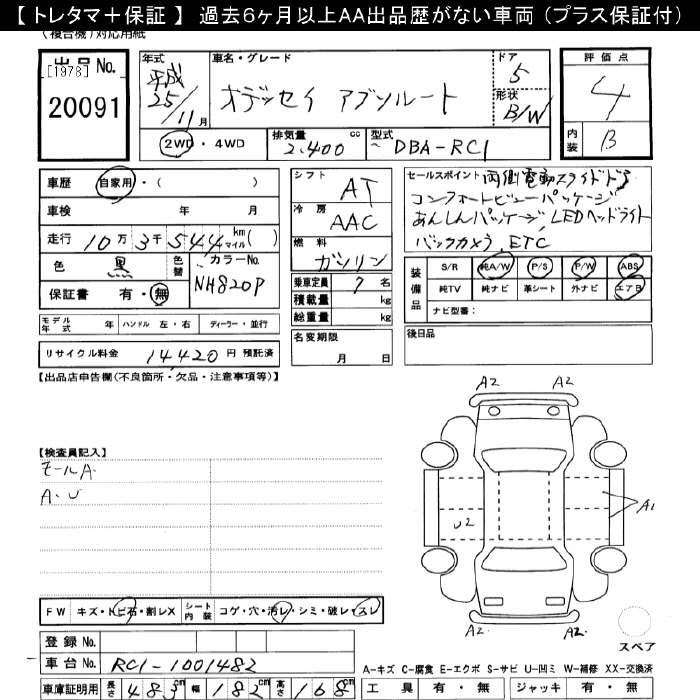 【トレタマ＋保証】 過去6ヶ月以上AA出品歴がない車両（プラス保証付）
（複合機）対応用紙
出品No.
[1978]
20091
年式
平成
25/11月
車名・グレード
オデッセイ アブソルート
ドア
5
形状
B/W
2WD・4WD
排気量
2.400 cc
型式
DBA-RC1
評価点
4
内装
B
車歴 自家用・( )
車検 年 月
走行 10万3千544 km マイル( )
色 黒 色替 カラーNo. NH820P
保証書 有・無
モデル年式 年 ハンドル 左・右 ディーラー・並行
リサイクル料金 14,420 円 預託済
シフト AT
冷房 AAC
燃料 ガソリン
乗車定員 7 名
積載量 kg
総重量 kg
名変期限
月 日
セールスポイント 両側電動スライドドア
コンフォートビューパッケージ
あんしんパッケージ LEDヘッドライト
バックカメラ, ETC
装備品
S/R 純A/W P/S P/W ABS
純TV 純ナビ 革シート 外ナビ エアB
ナビ型番：
後日品
【出品店申告欄(不良箇所・欠品・注意事項等)】
【検査員記入】
モールA.
A.U
A2 A2
A1
U2
A2 A2
スペア
FW キズ・トビ石・割レX シート内装 コゲ・穴・汚レ・シミ・破レ・スレ
登録No.
車台No. RC1-1001482
車庫証明用 長さ 483cm 幅 182cm 高さ 168cm
A-キズ C-腐食 E-エクボ S-サビ U-凹ミ W-補修 XX-交換済
工具 有・無 ジャッキ 有・無